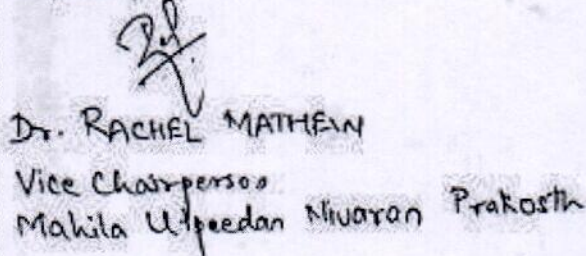 Dr. RACHEL MATHEW
Vice Chairperson
Mahila Utpeedan Nivaran Prakosth